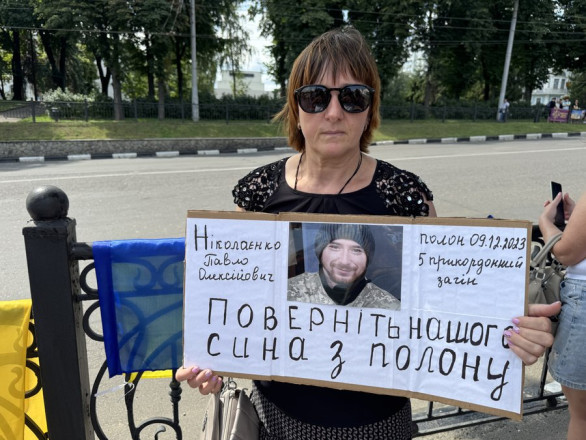 Ніколаєнко
Павло
Олексійович
полон 09.12.2023
5 прикордонний
загін
ПОВЕРНІТЬ НАШОГО
СИНА З ПОЛОНУ